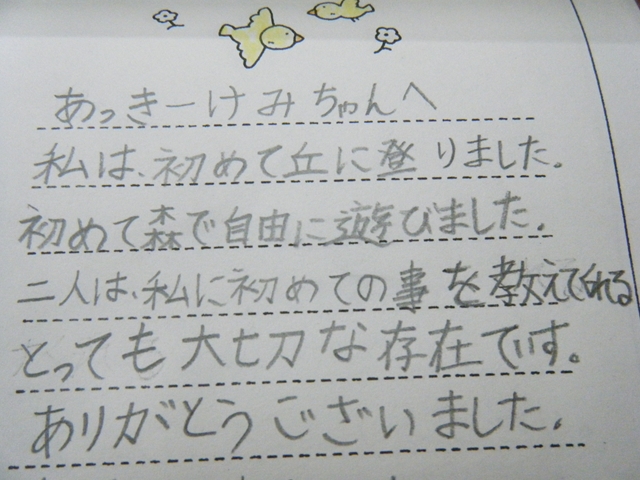 あっきーけみちゃんへ
私は、初めて丘に登りました。
初めて森で自由に遊びました。
二人は、私に初めての事を教えてくれる
とっても大切な存在です。
ありがとうございました。